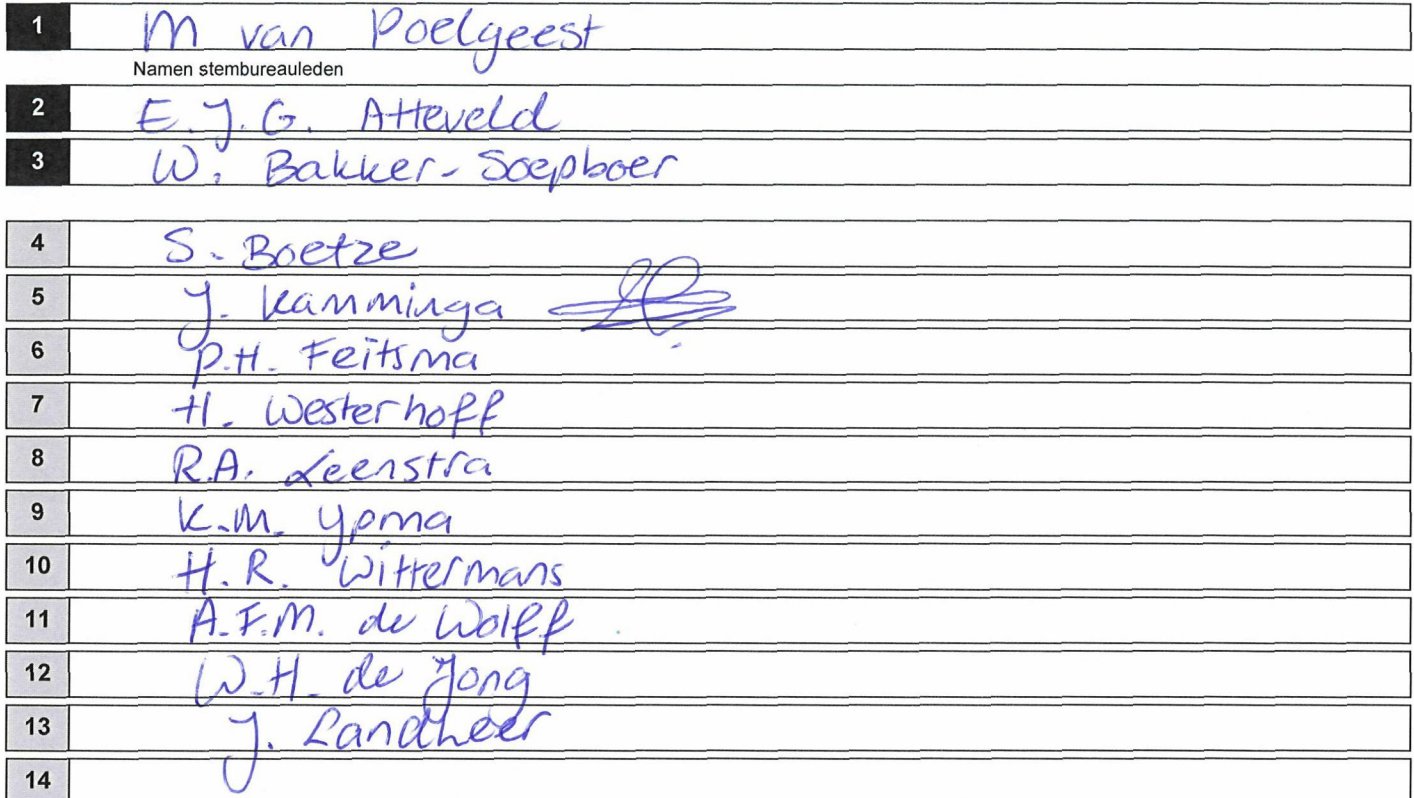 1 M van Poelgeest
Namen stembureauleden
2 E.J.G. Atteveld
3 W. Bakker-Soepboer
4 S. Boetze
5 J. Kamminga
6 P.H. Feitsma
7 H. Westerhoff
8 R.A. Leenstra
9 K.M. Ypma
10 H.R. Wittermans
11 A.F.M. de Wolff
12 W.H. de Jong
13 J. Landheer
14